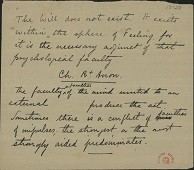 The Will does not exist. It exists
within the sphere of Feeling for
it is the necessary adjunct of that
psychological faculty
Ch. Bt Anon.
The faculty of the mind united to an
faculties
external produce the act.
Sometimes there is a conflict of
of impulses, the strongest or the most
strongly aided predominates.